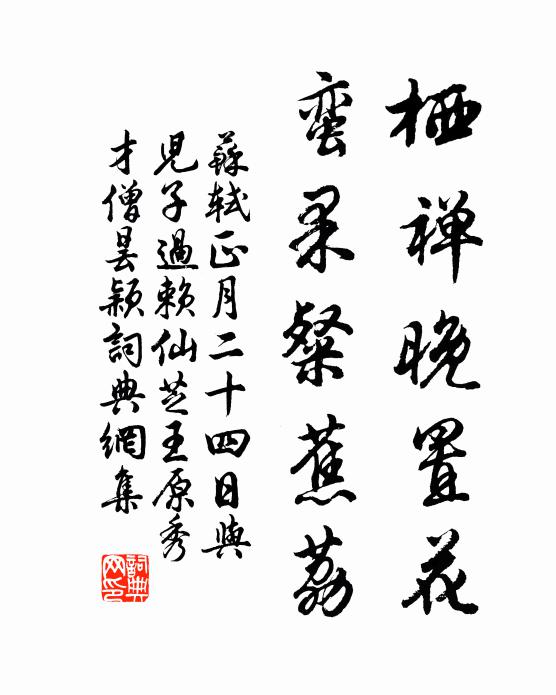 栖禅晚置花
蛮果粲蕉荔
蘇軾正月二十四日與
兒子過賴仙芝王原秀
才僧曇穎詞典網集
詞典网印